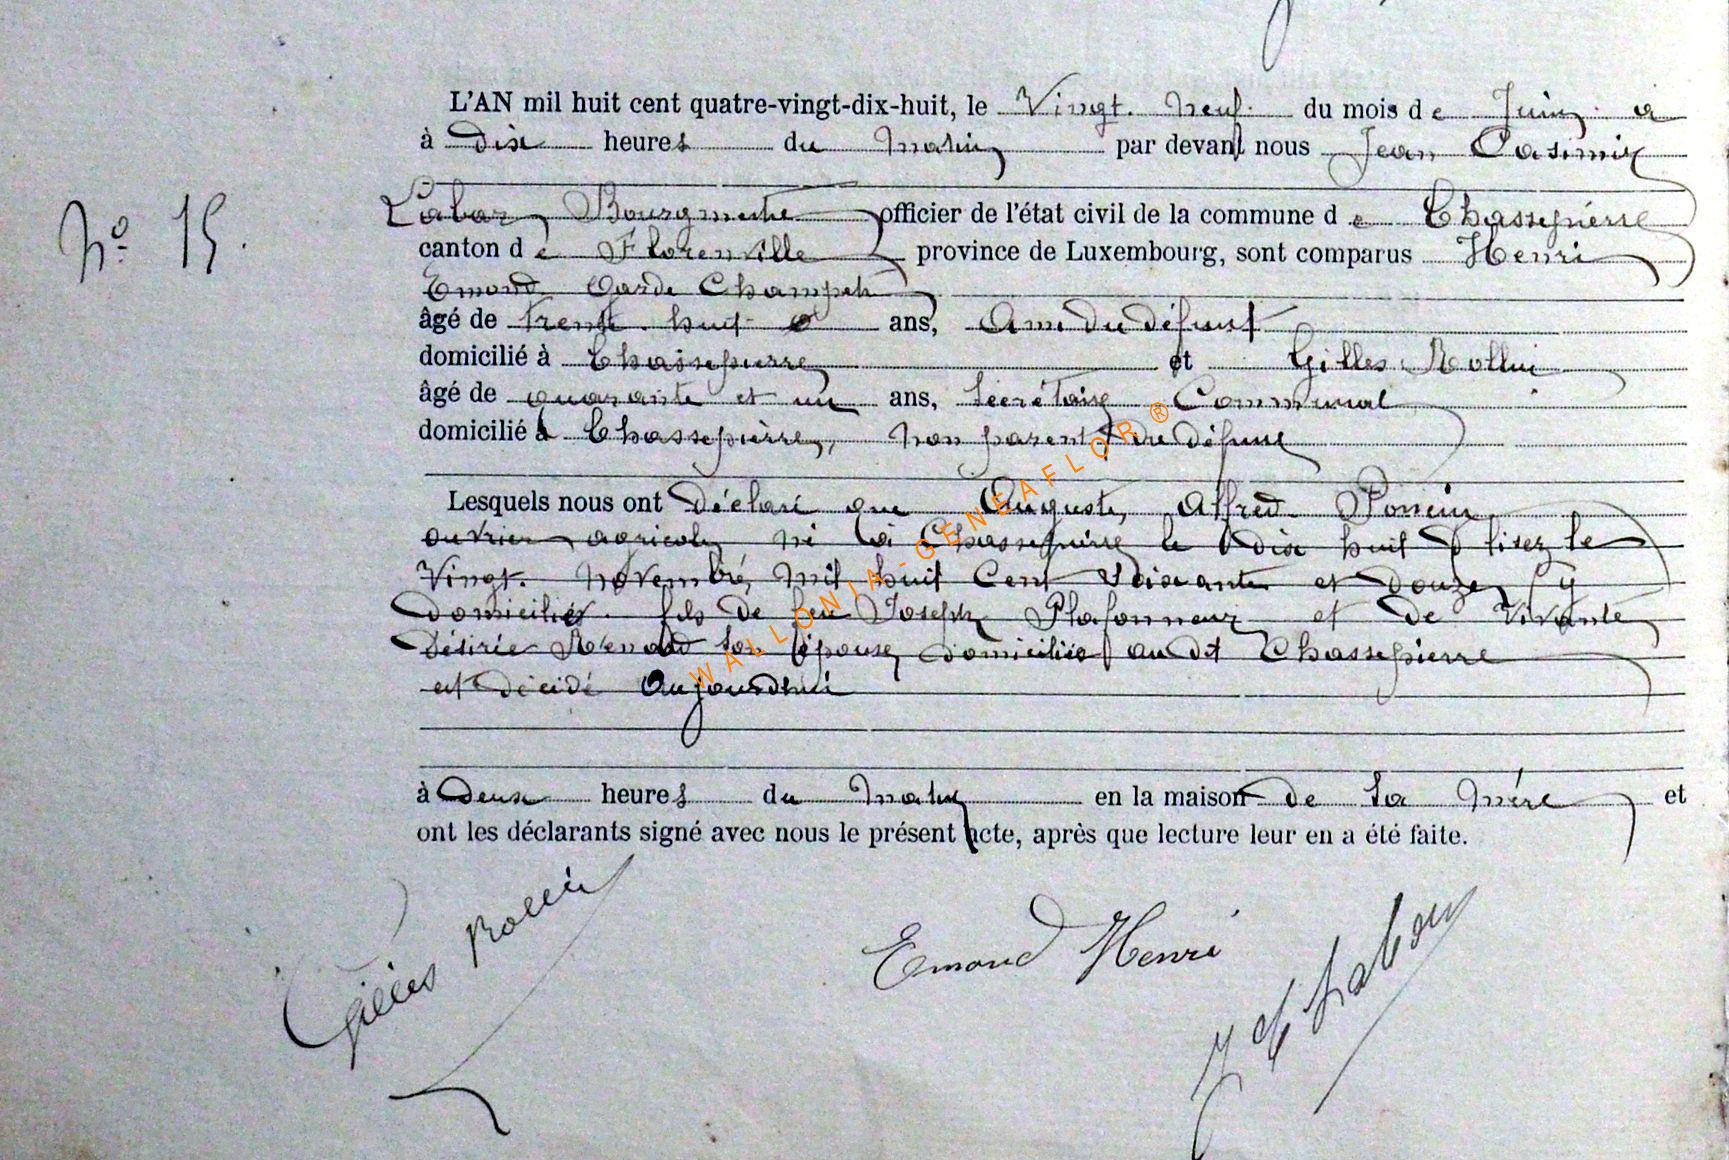 L'AN mil huit cent quatre-vingt-dix-huit, le Vingt. Neuf. du mois d e Juin. a
à dix heures du Matin par devant nous Jean Casimir
No 15.
Labar Bourgmestre officier de l'état civil de la commune d e Chassepierre
canton d e Florenville province de Luxembourg, sont comparus Henri
Emond Garde Champêtre
âgé de trente huit ans, Ami du défunt
domicilié à Chassepierre et Gilles Rollin
âgé de quarante et un ans, Secrétaire Communal
domicilié à Chassepierre, non parent du défunt
Lesquels nous ont Déclaré que Auguste, Alfred Poncin
ouvrier agricole né à Chassepierre le dix huit lisez le
Vingt. Novembre, Mil huit Cent Soixante et douze, y
Domicilié. fils de feu Joseph Plafonneur et de Vivante
Désirée Renard son épouse, domiciliée au dt Chassepierre
est décédé Aujourdhui
à Deux heures du Matin en la maison de sa Mère et
ont les déclarants signé avec nous le présent acte, après que lecture leur en a été faite.
Gilles Rollin
Emond Henri
J C Labar
WALLONIA-GENEAFLOR®